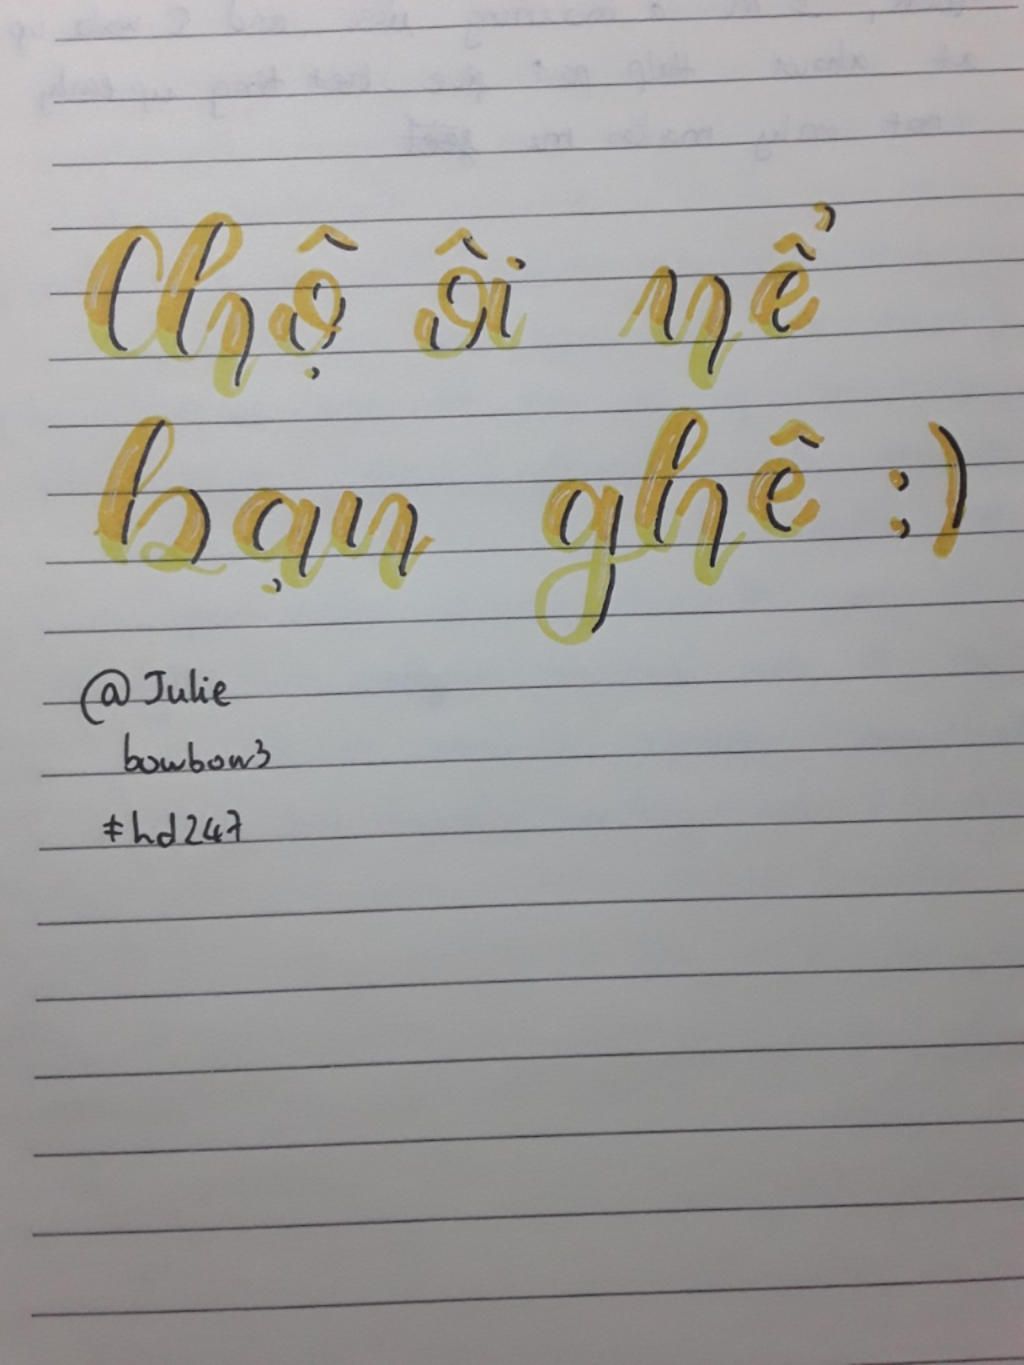 Chộ ôi nể
bạn ghê :)
@Julie
bowbow3
#hd247